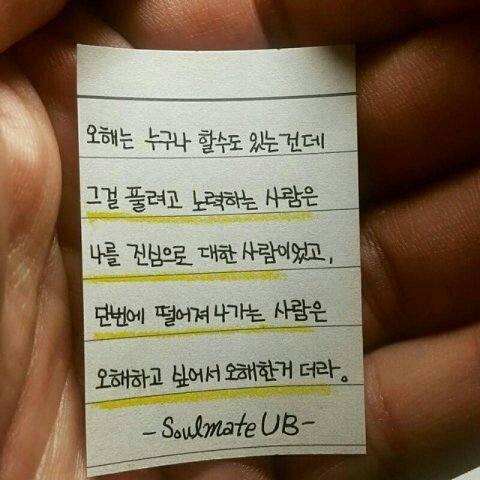 오해는 누구나 할수도 있는건데
그걸 풀려고 노력하는 사람은
나를 진심으로 대한 사람이었고,
단번에 떨어져 나가는 사람은
오해하고 싶어서 오해한거 더라。
- Soulmate UB -